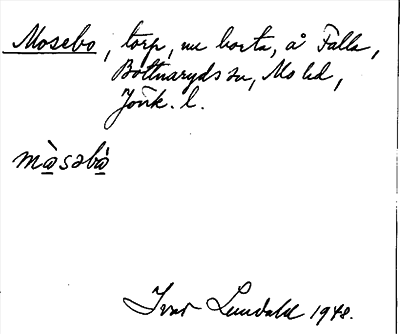 Mosebo, torp, nu borta, å Falla,
Bottnaryds sn, Mo hd,
Jönk. l.
mòsəbò
Ivar Lundahl 1948.